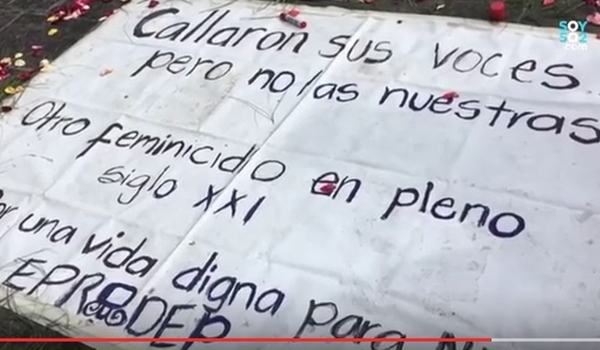 SOY
502
.com
Callaron sus voces
pero no las nuestras
Otro feminicido en pleno
siglo XXI
una vida digna para
EPRODEP